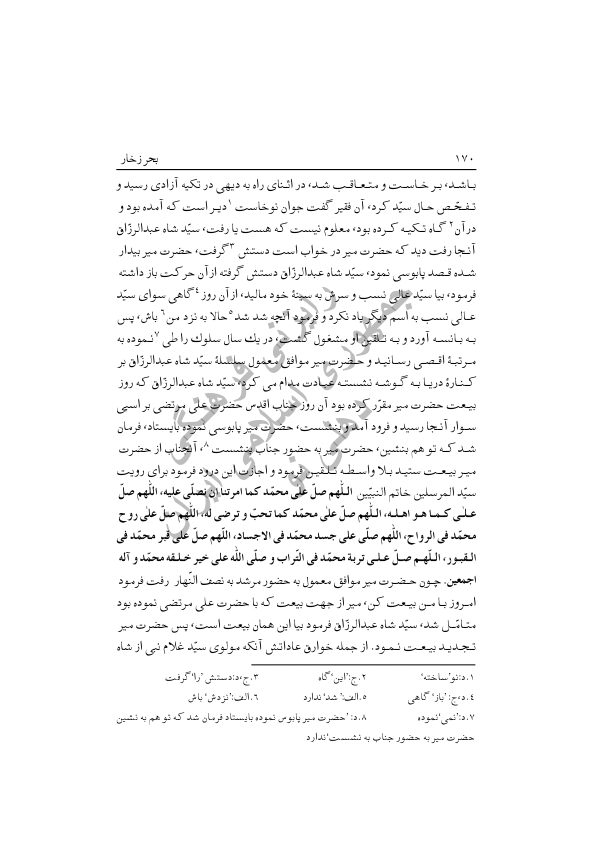 ۱۷۰ بحر زخار
باشد، بر خاست و متعاقب شد، در اثنای راه به دیهی در تکیه آزادی رسید و
تفحّص حال سیّد کرد، آن فقیر گفت جوان نوخاست۱ دیر است که آمده بود و
در آن۲ گاه تکیه کرده بود، معلوم نیست که هست یا رفت، سیّد شاه عبدالرزّاق
آنجا رفت دید که حضرت میر در خواب است دستش۳ گرفت، حضرت میر بیدار
شده قصد پابوسی نمود، سیّد شاه عبدالرزّاق دستش گرفته از آن حرکت باز داشته
فرمود، بیا سیّد عالی نسب و سرش به سینهٔ خود مالید، از آن روز۴ گاهی سوای سیّد
عالی نسب به اسم دیگر یاد نکرد و فرمود آنچه شد شد۵ حالا به نزد من۶ باش، پس
به بانسه آورد و به تلقین او مشغول گشت، در یك سال سلوك را طی۷ نموده به
مرتبهٔ اقصی رسانید و حضرت میر موافق معمول سلسلهٔ سیّد شاه عبدالرزّاق بر
کنارهٔ دریا به گوشه نشسته عبادت مدام می کرد، سیّد شاه عبدالرزّاق که روز
بیعت حضرت میر مقرّر کرده بود آن روز جناب اقدس حضرت علی مرتضی بر اسبی
سوار آنجا رسید و فرود آمد و بنشست، حضرت میر پابوسی نموده بایستاد، فرمان
شد که تو هم بنشین، حضرت میر به حضور جناب بنشست۸، آنجناب از حضرت
میر بیعت ستید بلا واسطه تلقین فرمود و اجازت این درود فرمود برای رویت
سیّد المرسلین خاتم النبیّین اللّهم صلّ علی محمّد کما امرتنا ان نصلّی علیه، اللّهم صلّ
علی کما هو اهله، اللّهم صلّ علی محمّد کما تحبّ و ترضی له، اللّهم صلّ علی روح
محمّد فی الرواح، اللّهم صلّی علی جسد محمّد فی الاجساد، اللّهم صلّ علی قبر محمّد فی
القبور، اللّهم صلّ علی تربة محمّد فی التّراب و صلّی الله علی خیر خلقه محمّد و آله
اجمعین. چون حضرت میر موافق معمول به حضور مرشد به نصف النّهار رفت فرمود
امروز با من بیعت کن، میر از جهت بیعت که با حضرت علی مرتضی نموده بود
متامّل شد، سیّد شاه عبدالرزّاق فرمود بیا این همان بیعت است، پس حضرت میر
تجدید بیعت نمود. از جمله خوارق عاداتش آنکه مولوی سیّد غلام نبی از شاه
۱.د:نو'ساخته' ۲.ج:'این'گاه ۳.ج،د:دستش 'را'گرفت
۴.د،ج: 'باز' گاهی ۵.الف:' شد' ندارد ۶.الف:'نزدش' باش
۷.د:'نمی'نموده ۸.د: 'حضرت میر پابوس نموده بایستاد فرمان شد که تو هم به نشین
حضرت میر به حضور جناب به نشست'ندارد